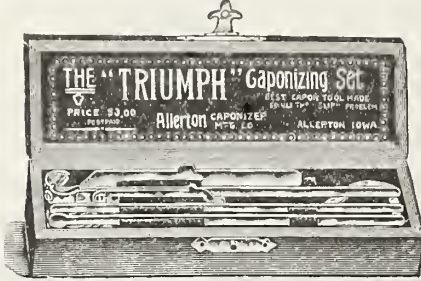 THE "TRIUMPH" Caponizing Set
BEST CAPON TOOL MADE
SOLVES THE "SLIP" PROBLEM
PRICE $3.00
POSTPAID
Allerton CAPONIZER
MFG. CO
ALLERTON IOWA